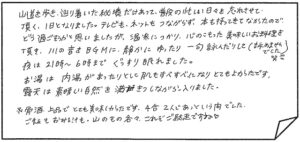 山道を歩き、辿り着いた桃源だけあって、普段の忙しい日々を忘れさせて
頂く、1日となりました。テレビも、ネットもつながらず、本も持ってきてなかったので
どう過ごそうか思いましたが、温泉につかり、心のこもった美味しいお料理を
頂き、川の音をBGMに、静かにゆったり
夜は21時〜6時までぐっすり眠れました。
お湯は 内湯があったりとして肌もすべすべになり とてもよかったです。
露天は素晴しい自然を満喫しながら入りました。
お常酒 上品でとても美味しかったです。4合 2人であっという間でした。
ごはんもおかわりも、山のもの各々、これぞご馳走ですね